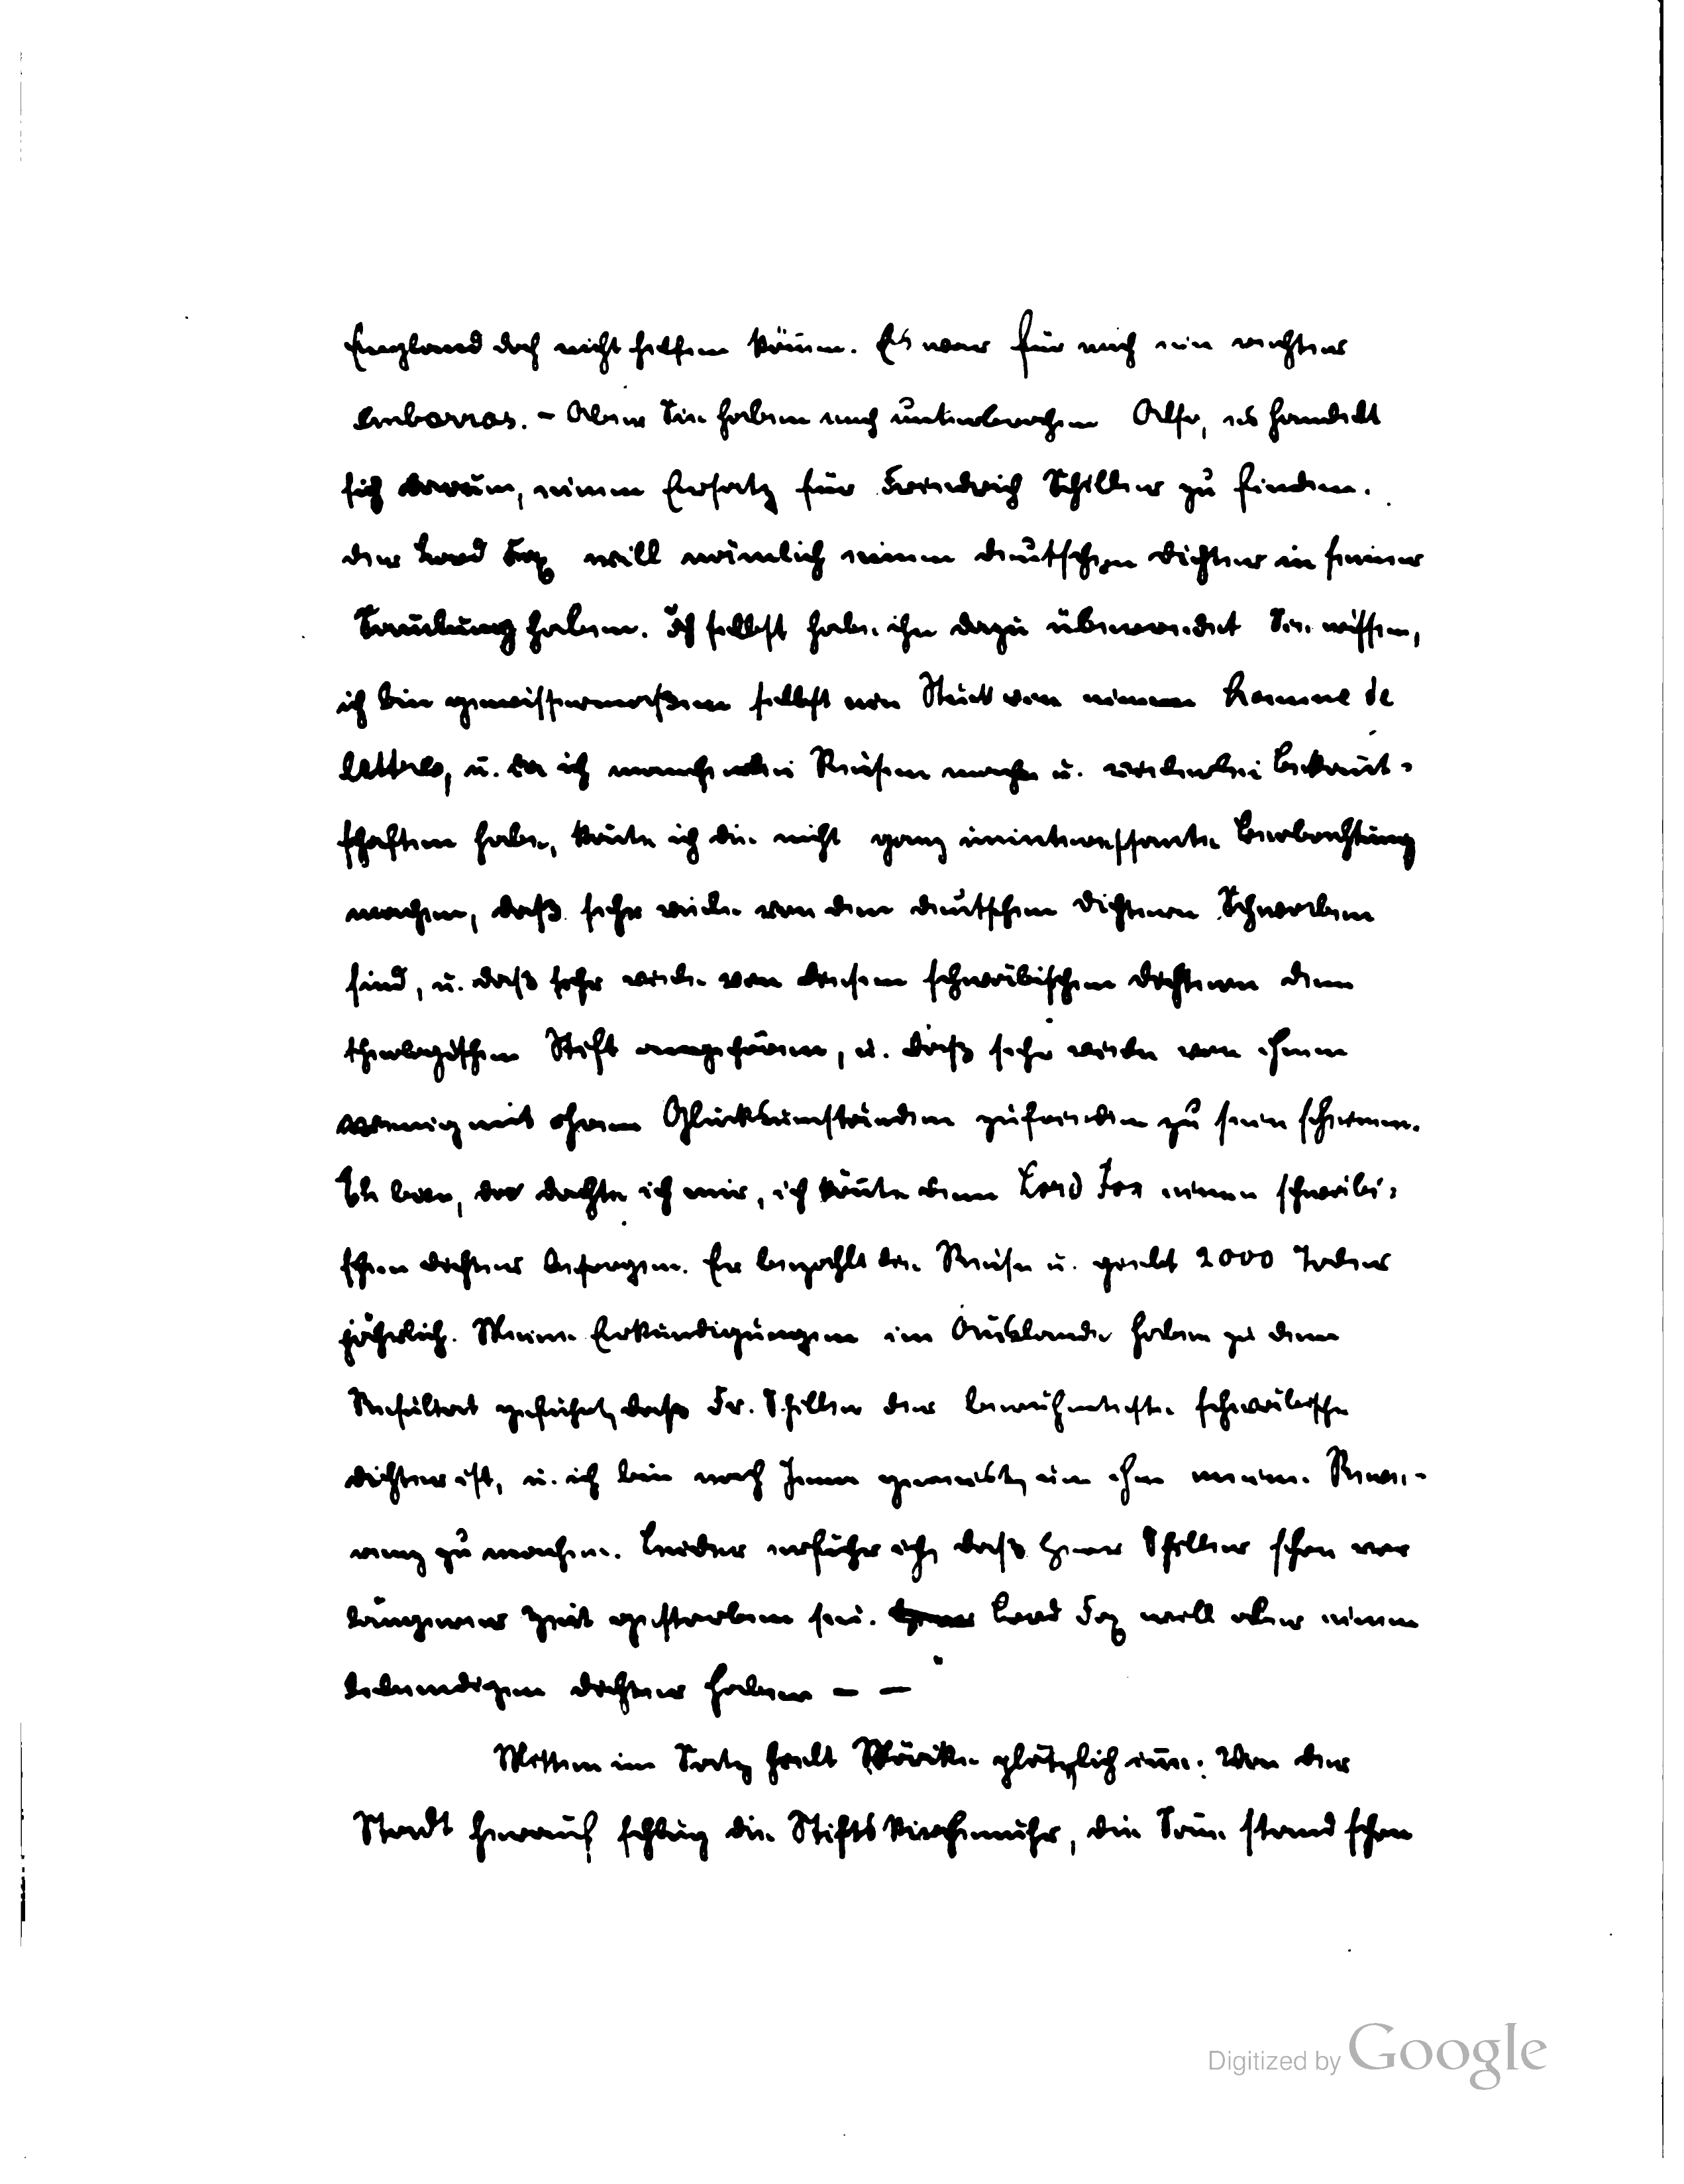 England doch nicht helfen könne. Es war für mich ein rechter
Embarras. – Aber Sie haben mich unterbrochen. Also, es handelt
sich darum, einen Ersatz für Friedrich Schiller zu finden.
Der Lord Fox will nämlich einen deutschen Dichter in seiner
Samlung haben. Ich selbst habe ihn dazu überredet. Sie wissen,
ich bin gewissermaßen selbst ein Stück von einem homme de
lettres, u. da ich mancherlei Reisen mache u. vielerlei Bekant-
schaften habe, konte ich die nicht ganz uninteressante Beobachtung
machen, daß sehr viele von den deutschen Dichtern Schwaben
sind, u. daß sehr viele von diesen schwäbischen Dichtern dem
theologischen Stift angehören, u. daß sehr viele von ihnen
wenig mit ihren Glücksumständen zufrieden zu sein scheinen.
Eh bien, da dachte ich mir, ich könte dem Lord Fox einen schwäbi-
schen Dichter besorgen. Er bezahlt die Reise u. giebt 2000 Taler
jährlich. Meine Erkundigungen im Auslande haben zu dem
Resultat geführt, daß Fr. Schiller der berühmteste schwäbische
Dichter ist, u. ich bin nach Jena gereist, um ihm meine Reve-
renz zu machen. Leider erfuhr ich, daß Herr Schiller schon vor
längerer Zeit gestorben sei. Lord Fox will aber einen
lebendigen Dichter haben – –
Mitten im Satz hielt Mörike plötzlich inne: Von der
Stadt herauf schlug die Stiftskirchenuhr, die Sonne stand schon
Digitized by Google